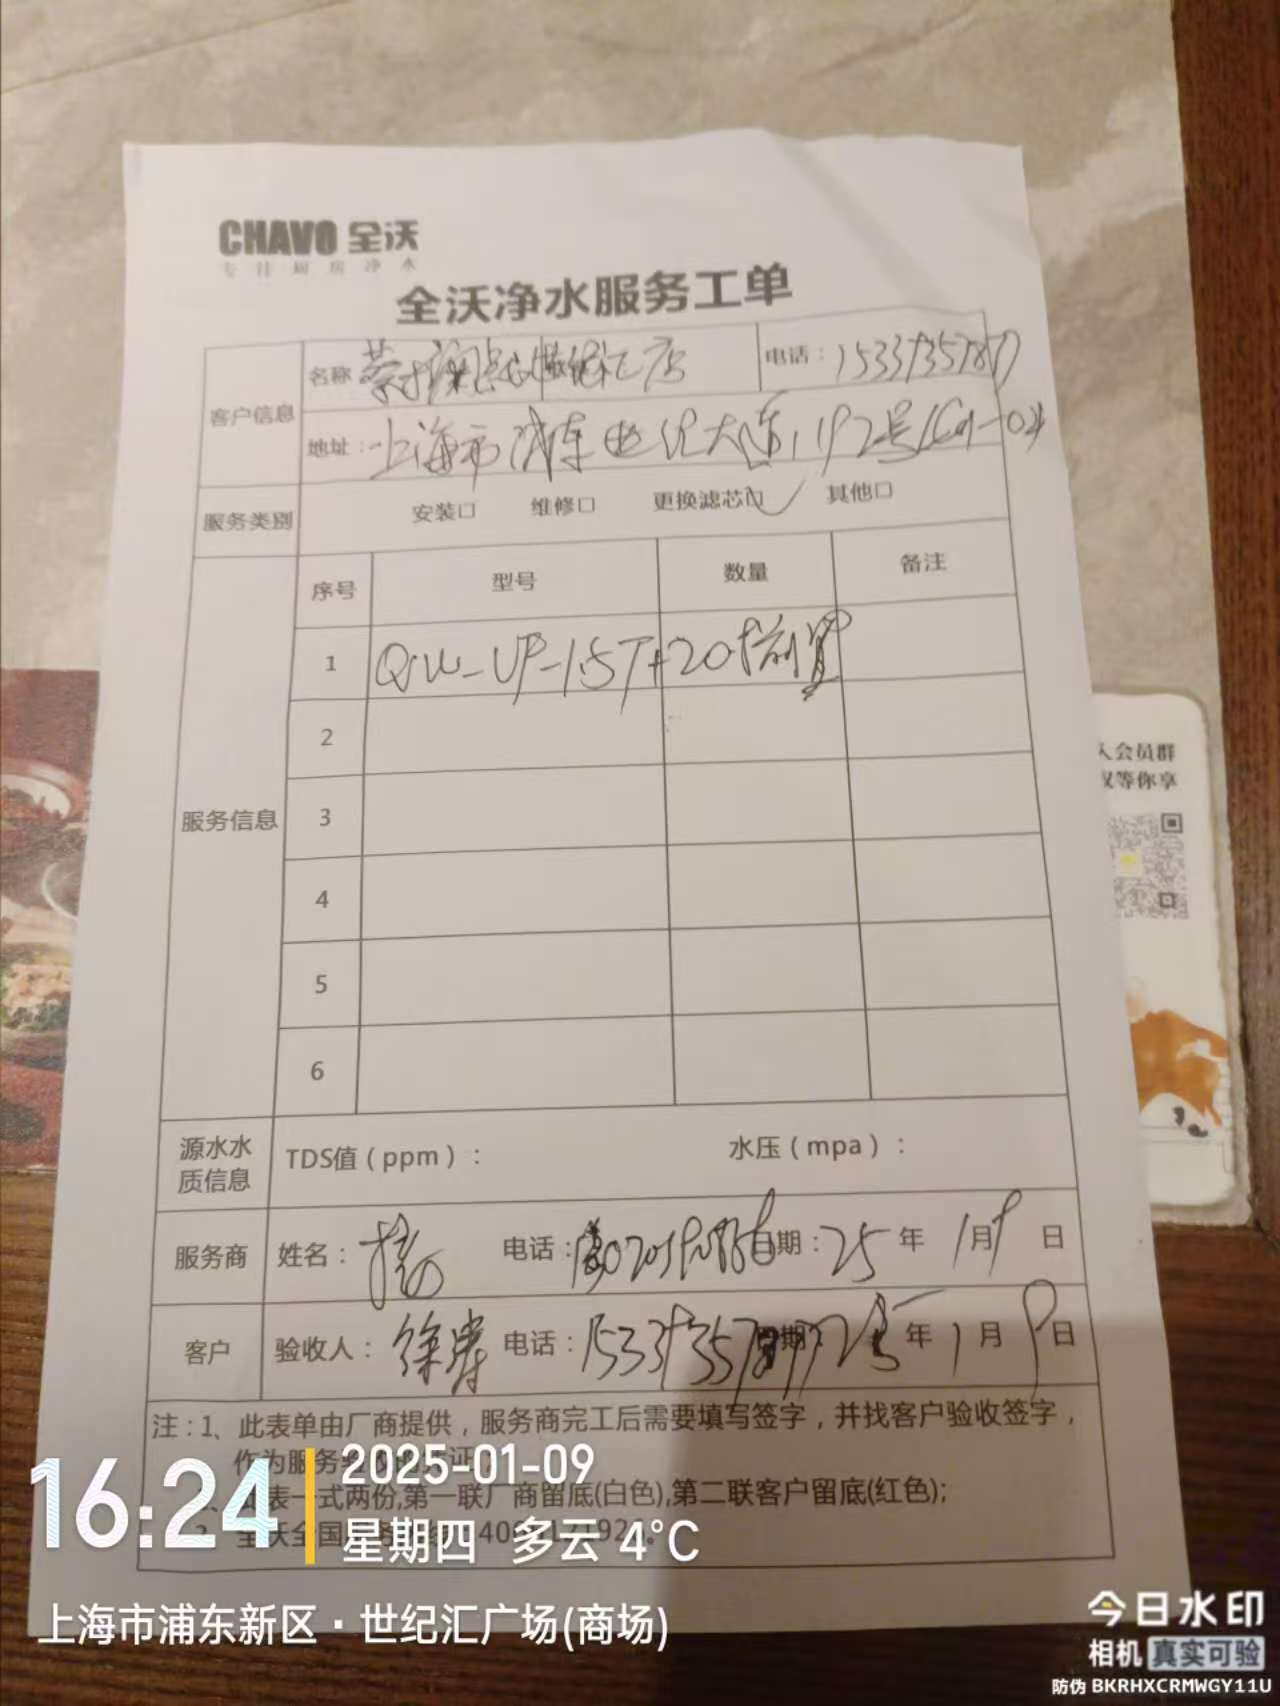 CHAVO 全沃
专注厨房净水
全沃净水服务工单
客户信息
名称
店
电话：
地址：上海市浦东世纪大道1192号
服务类别
安装口 维修口 更换滤芯口✓ 其他口
服务信息
序号 型号 数量 备注
1 QW-UF-1.5T+20寸前置
2
3
4
5
6
源水水质信息
TDS值（ppm）： 水压（mpa）：
服务商 姓名： 电话： 日期：25年1月9日
客户 验收人：徐 电话： 日期：25年1月9日
注：1、此表单由厂商提供，服务商完工后需要填写签字，并找客户验收签字，
作为服务
表一式两份,第一联厂商留底(白色),第二联客户留底(红色);
全沃全国
人会员群
等你享
16:24
2025-01-09
星期四 多云 4℃
上海市浦东新区·世纪汇广场(商场)
今日水印
相机 真实可验
防伪 BKRHXCRMWGY11U